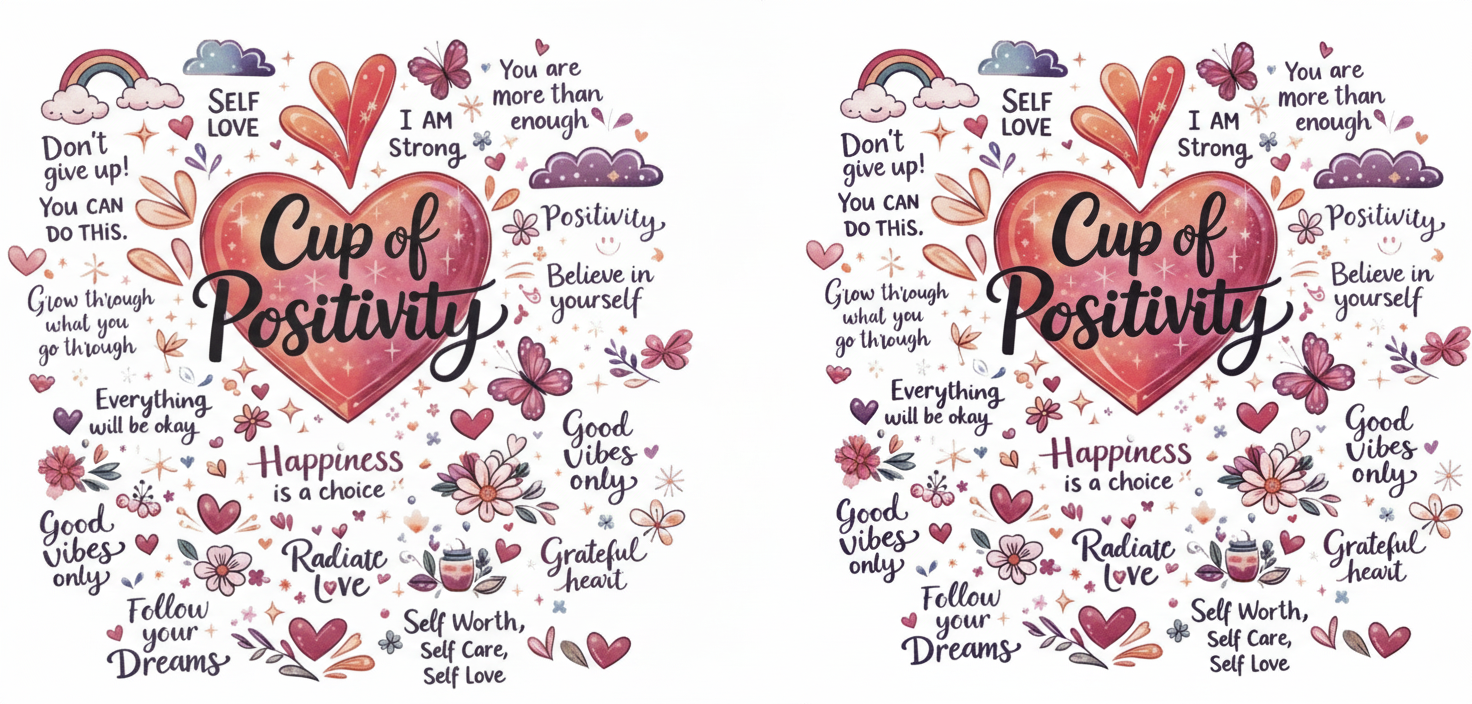 SELF
LOVE
You are
more than
enough
I AM
Strong
Don't
give up!
YOU CAN
DO THIS.
Cup of
Positivity
Positivity
Believe in
yourself
Grow through
what you
go through
Everything
will be okay
Good
vibes
only
Happiness
is a choice
Good
vibes
only
Radiate
Love
Grateful
heart
Follow
your
Dreams
Self Worth,
Self Care,
Self Love
SELF
LOVE
You are
more than
enough
I AM
Strong
Don't
give up!
YOU CAN
DO THIS.
Cup of
Positivity
Positivity
Believe in
yourself
Grow through
what you
go through
Everything
will be okay
Good
vibes
only
Happiness
is a choice
Good
vibes
only
Radiate
Love
Grateful
heart
Follow
your
Dreams
Self Worth,
Self Care,
Self Love